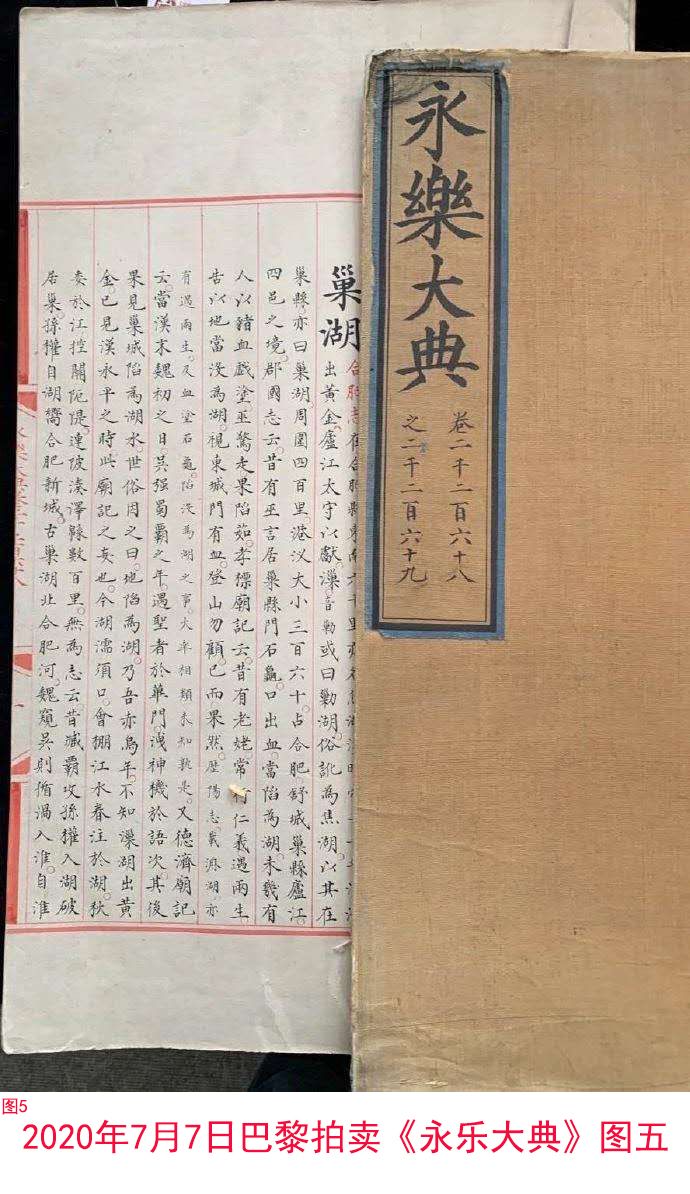 永樂大典
卷二千二百六十八
之二千二百六十九
巢湖
合肥志在合肥縣東南六十里
出黃金廬江太守以獻漅音勦或曰勦湖俗訛為焦湖以其在
巢縣亦曰巢湖周圍四百里港汊大小三百六十占合肥舒城巢縣廬江
四邑之境郡國志云昔有巫言居巢縣門石龜口出血當陷為湖未幾有
人以豬血戲塗巫驚走果陷茹孝標廟記云昔有老姥常行仁義遇兩生
告以地當沒為湖視東城門有血登山勿顧已而果然歷陽志載麻湖亦
有遇兩生及血塗石龜陷沒為湖之事大率相類未知孰是又德濟廟記
云當漢末魏初之日吳强蜀霸之年遇聖者於華門洩神機於語次其後
果見巢城陷為湖水世俗因之曰地陷為湖乃吾亦烏年不知漅湖出黃
金已見漢永平之時此廟記之妄也今湖濡須口會柵江水春注於湖秋
委於江控關阨隄連陂湊澤緜數百里無為志云昔臧霸攻孫權入湖破
居巢孫權自湖嚮合肥新城古巢湖北合肥河魏窺吳則循渦入淮自淮
图5
2020年7月7日巴黎拍卖《永乐大典》图五